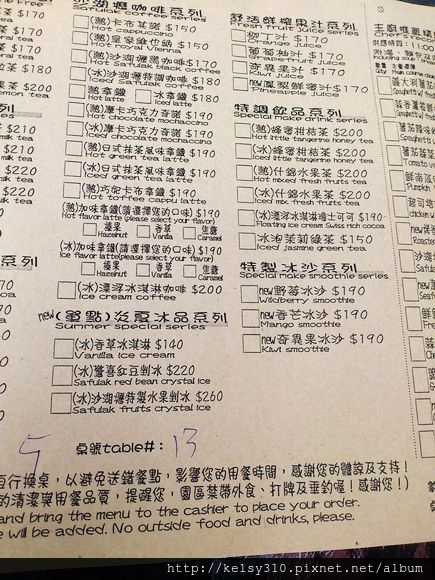 沙湖壢咖啡系列
Safulak coffee series
(熱)卡布其諾 $150
Hot cappuccino
(熱)皇家維也納 $150
Hot royal Vienna
(熱)沙湖壢黑咖啡 $170
Hot Safulak black coffee
(冰)沙湖壢特調咖啡 $180
Iced Safulak coffee
熱拿鐵 冰拿鐵 $180
Hot latte Iced latte
(熱)摩卡巧克力奇諾 $190
Hot chocolate mochaccino
(冰)摩卡巧克力奇諾 $190
Iced chocolate mochaccino
(熱)日式抹茶風味拿鐵 $190
Hot green tea latte
(冰)日式抹茶風味拿鐵 $190
Iced green tea latte
(熱)巧妃卡布拿鐵 $190
Hot toffee cappu latte
(熱)加味拿鐵(請選擇您的口味) $190
Hot flavor latte(please select your flavor)
榛果 香草 焦糖
Hazelnut Vanilla Caramel
(冰)加味拿鐵(請選擇您的口味) $190
Ice flavor latte(please select your flavor)
榛果 香草 焦糖
Hazelnut Vanilla Caramel
(冰)漂浮冰淇淋咖啡 $200
Ice cream coffee
new(單點)炎夏冰品系列
Summer special series
(冰)香草冰淇淋 $140
Vanilla ice cream
(冰)驚喜紅豆剉冰 $220
Safulak red bean crystal ice
(冰)沙湖壢特製水果剉冰 $260
Safulak fruits crystal ice
舒活鮮榨果汁系列
Fresh fruit juice series
柳丁汁 $170
Orange juice
葡萄柚汁 $170
Grapefruit juice
奇異果汁 $170
Kiwi juice
new鳳梨鮮蜜汁 $170
Pineapple juice
特調飲品系列
Special make drink series
(熱)蜂蜜柑桔茶 $200
Hot little tangerine honey tea
(冰)蜂蜜柑桔茶 $200
Iced little tangerine honey tea
(熱)什錦水果茶 $200
Hot mixed fresh fruits tea
(冰)什錦水果茶 $200
Iced mix fresh fruits tea
(冰)漂浮冰淇淋瑞士可可 $190
Floating ice cream Swiss rich cocoa
(冰)冰泡茉莉綠茶 $150
Iced jasmine green tea
特製冰沙系列
Special make smoothie series
new野莓冰沙 $190
Wildberry smoothie
new香芒冰沙 $190
Mango smoothie
new奇異果冰沙 $190
Kiwi smoothie
5 桌號table#: 13
自行換桌，以避免送錯餐點，影響您的用餐時間，感謝您的體諒及支持！
的清潔與用餐品質，提醒您，園區禁帶外食、打牌及垂釣喔！感謝您！)
and bring the menu to the cashier to place your order.
will be added. No outside food and drinks, please.
http://kelsy310.pixnet.net/album